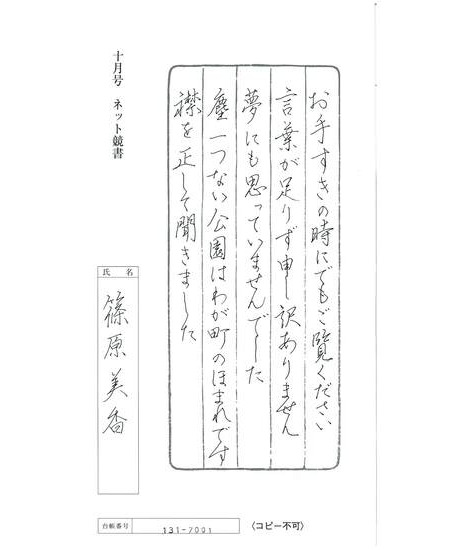 十月号 ネット競書
お手すきの時にでもご覧ください
言葉が足りず申し訳ありません
夢にも思っていませんでした
塵一つない公園はわが町のほまれです
襟を正して聞きました
氏名
篠原美香
台帳番号
131-7001
〈コピー不可〉